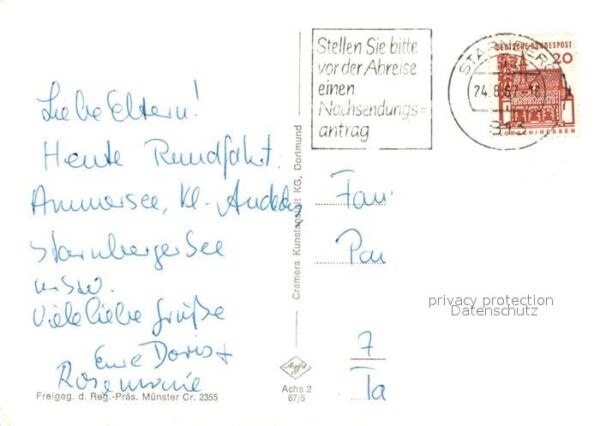 Stellen Sie bitte
vor der Abreise
einen
Nachsendungs=
antrag
STARNBERG
24.8.67-18
813
DEUTSCHE BUNDESPOST
20
LORSCH/HESSEN
Liebe Eltern!
Heute Rundfahrt:
Ammersee, Kl. Andechs,
Starnberger See
usw.
Viele liebe Grüße
Eure Doris +
Rosemarie
Fam.
Pau
7
Ia
privacy protection
Datenschutz
Cramers Kunstanstalt KG, Dortmund
Agfa
Achs 2
67/5
Freigeg. d. Reg.-Präs. Münster Cr. 2355